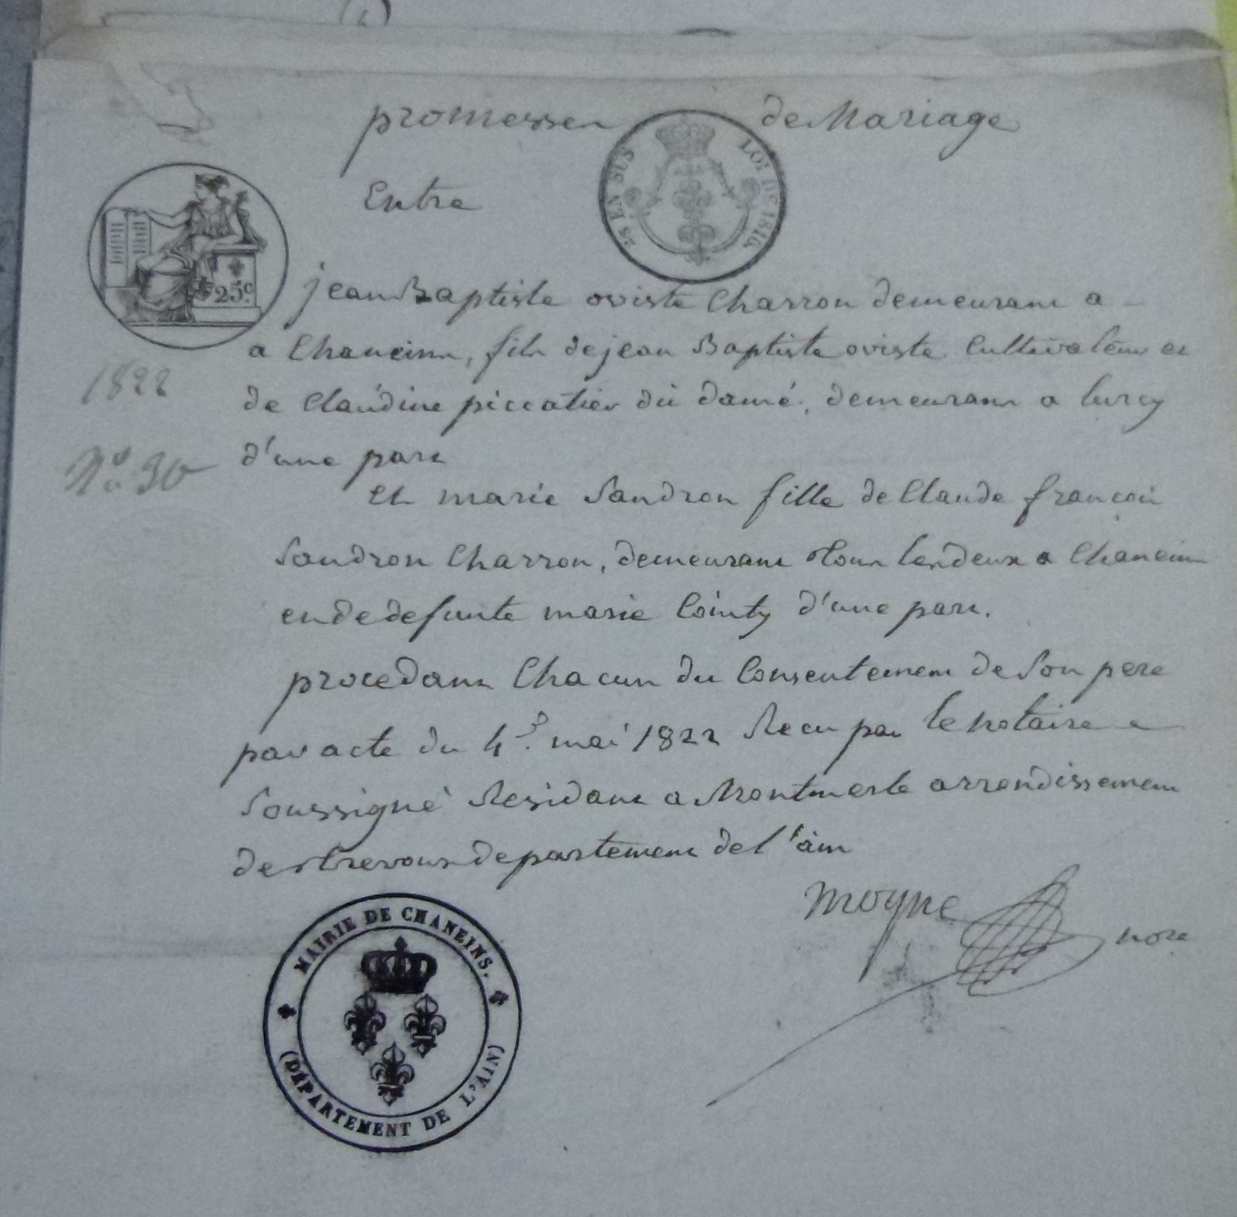 promesses de Mariage
Entre
25 EN SUS LOI DE 1816.
25c.
jean Baptiste oviste Charron demeurant a
a Chaneins, fils de jean Baptiste oviste Cultivateur et
1822
de Claudine piccatier du damé, demeurant a lurcy
No 30
d'une part
et marie Sandron fille de Claude françois
Sandron Charron, demeurant tous les deux a Chaneins
et de defunte marie Cointy d'une part.
procedant Chacun du Consentement de Son pere
par acte du 4 mai 1822 Recu par le notaire
Soussigné Residant a Montmerle arrondissement
de trevoux departement de l'ain
moyne nore
MAIRIE DE CHANEINS.
(DÉPARTEMENT DE L'AIN)